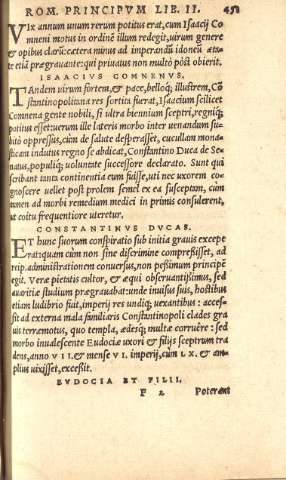 ROM. PRINCIPVM LIB. II. 451
VIx annum unum rerum potitus erat, cum Isaacij Co-
mneni motus in ordinē illum redegit, uirum genere
& opibus clarũ: cætera minus ad imperandũ idoneũ æta-
te etiã prægrauante: qui priuatus non multò pòst obierit.
ISAACIVS COMNENVS.
TAndem uirum fortē, & pace, belloq; illustrem, Cõ-
stantinopolitana res sortita fuerat, Isaacium scilicet
Comnena gente nobili, si ultra biennium sceptri, regniq́;
potitus esset: uerum ille lateris morbo inter uenandum su-
bitò oppressus, cùm de salute desperasset, cucullam mona-
sticam indutus regno se abdicat, Constantino Duca de Se-
natus, populiq́; uoluntate successore declarato. Sunt qui
scribant tanta continentia eum fuisse, ut nec uxorem co-
gnoscere uellet post prolem semel ex ea susceptam, cùm
tamen ad morbi remedium medici in primis consulerent,
ut coitu frequentiore uteretur.
CONSTANTINVS DVCAS.
ET hunc suorum conspiratio sub initia grauis excepe
rat: quam cùm non sine discrimine compressisset, ad
reip. administrationem conuersus, non pessimum principē
egit. Veræ pietatis cultor, & æqui obseruantissimus, sed
auaritiæ studium prægrauabat: unde inuisus suis, hostibus
etiam ludibrio fuit, imperij res undiq; uexantibus: acces-
sit ad externa mala familiaris Constantinopoli clades gra
uis terræmotus, quo templa, ædesq́; multæ corruêre: sed
morbo inualescente Eudociæ uxori & filijs sceptrum tra
dens, anno VII. & mense VI. imperij, cùm LX. & am-
plius uixisset, excessit.
EVDOCIA ET FILII.
F 2 Poterant